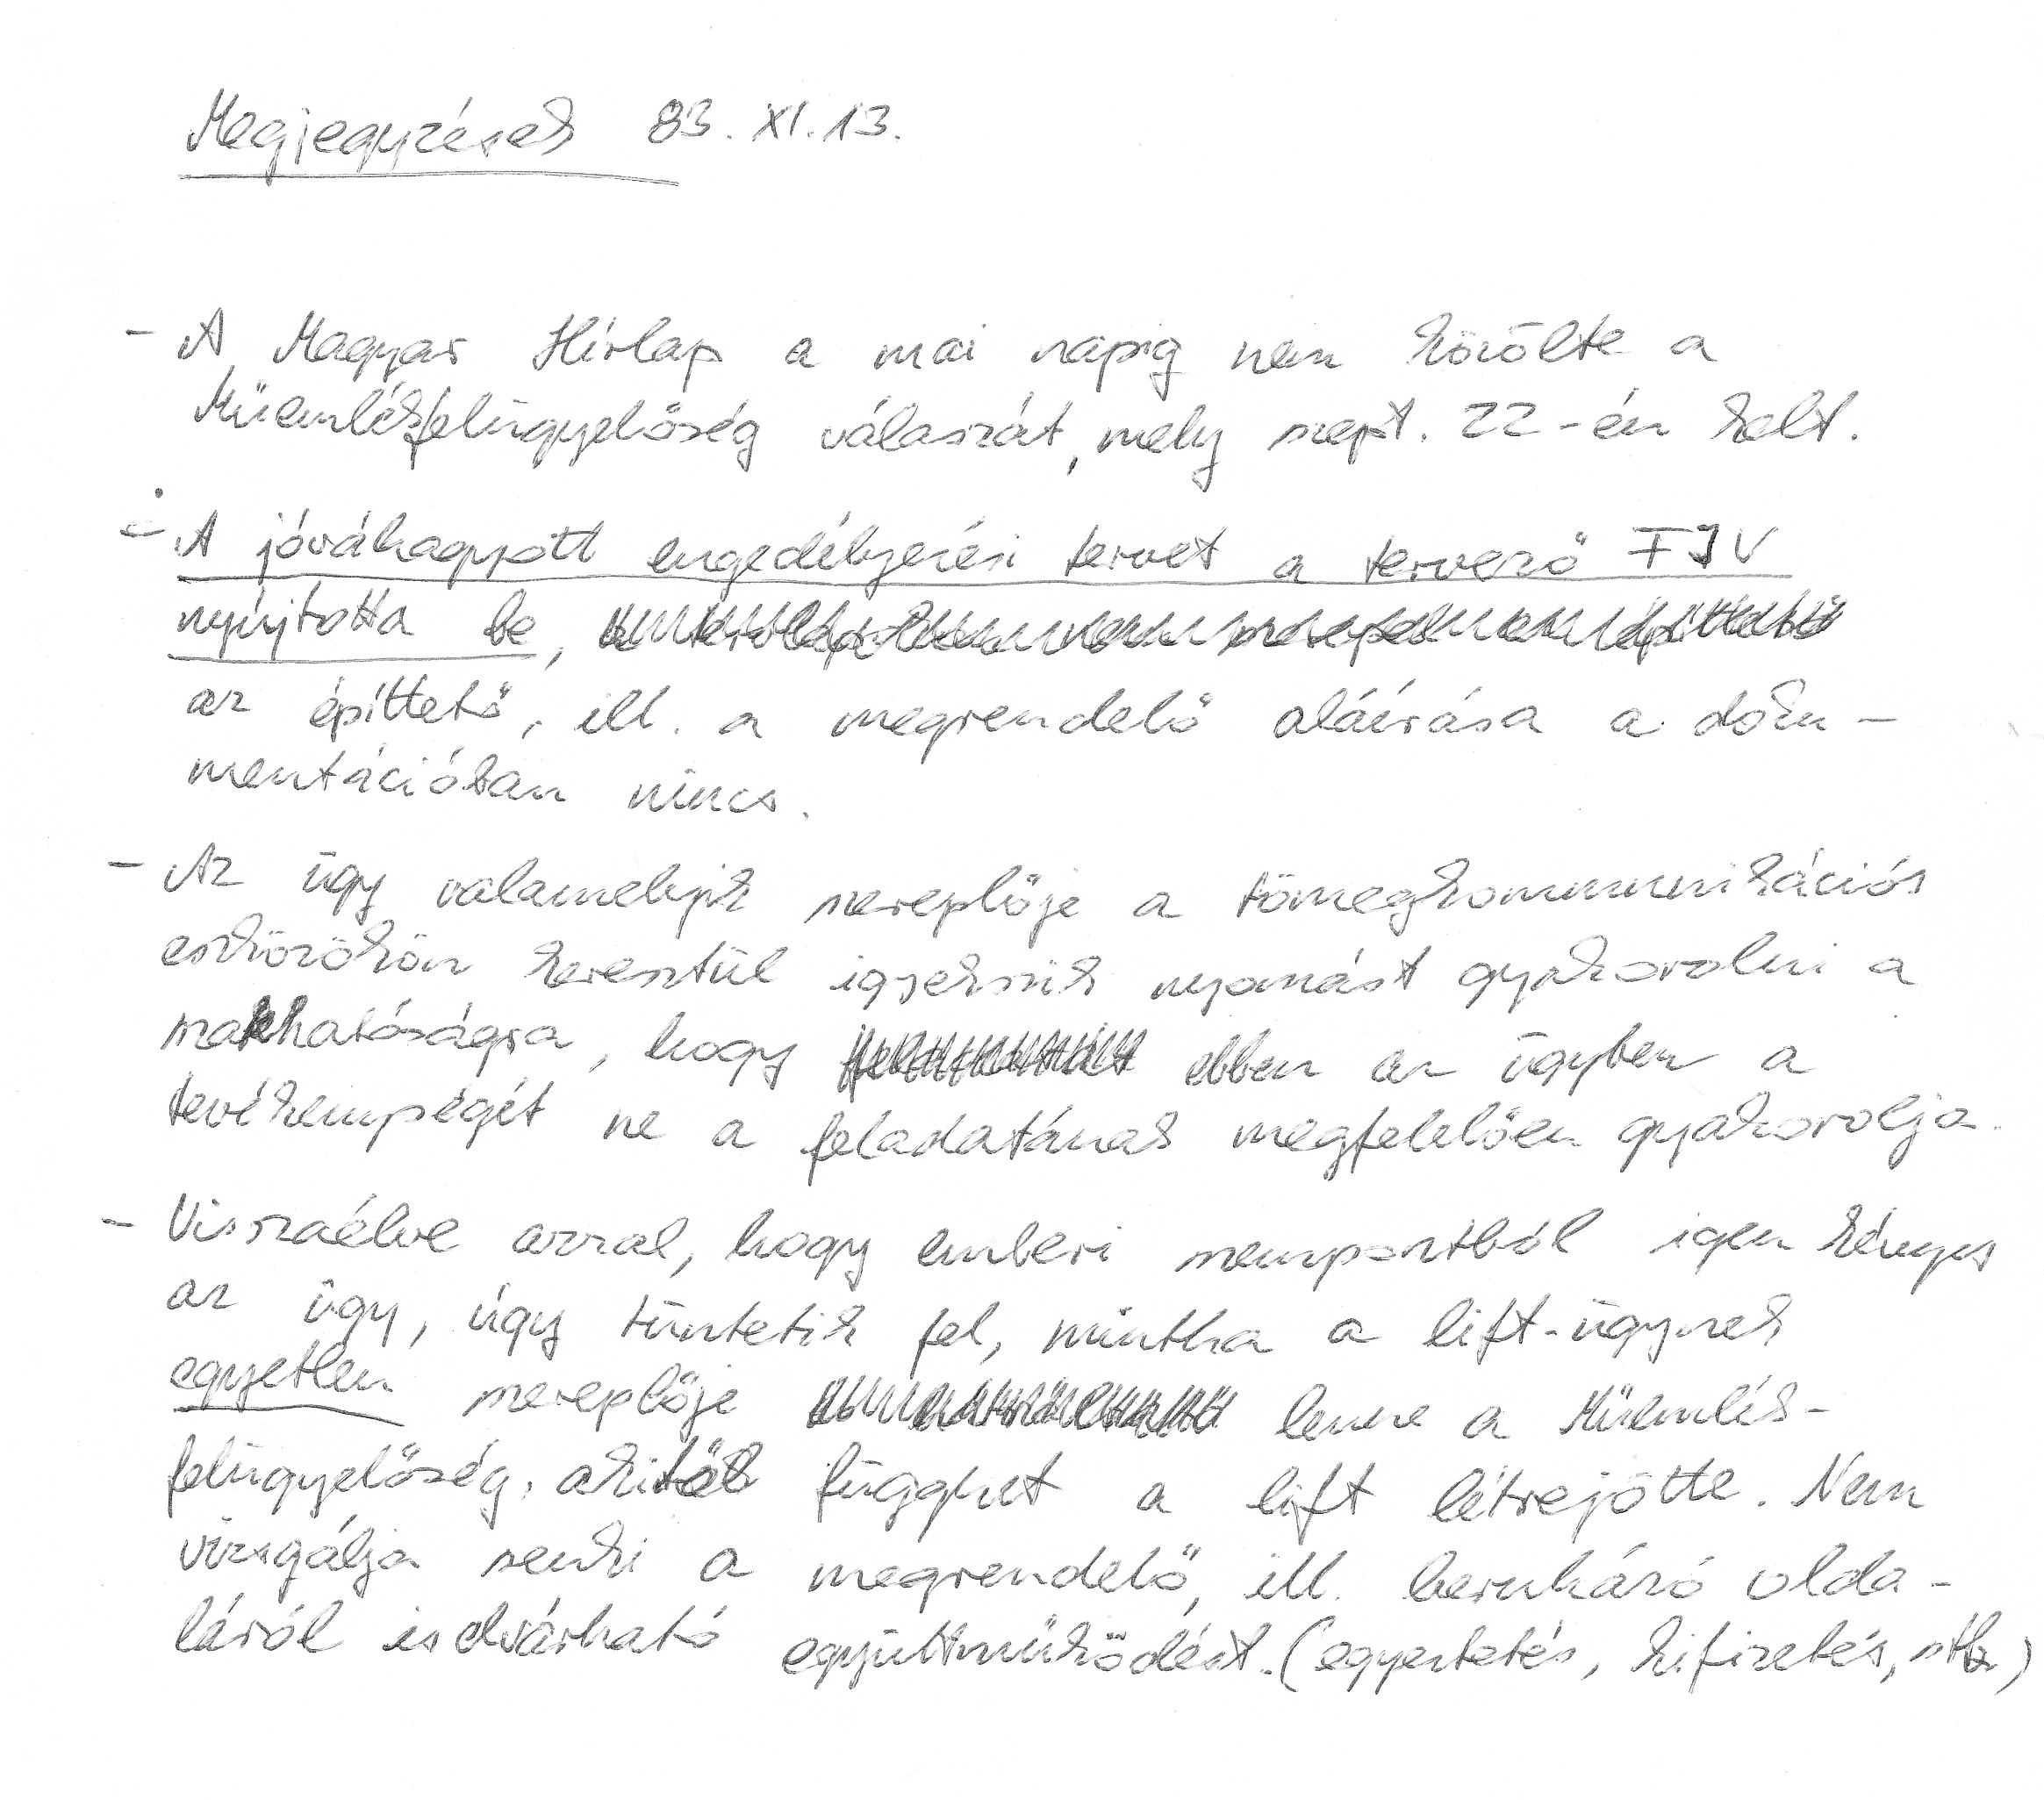 Megjegyzések 83. XI. 13.
- A Magyar Hírlap a mai napig nem közölte a
Műemlékfelügyelőség válaszát, mely szept. 22-én kelt.
- A jóváhagyott engedélyezési tervet a tervező FJV
nyújtotta be,
az építtető, ill. a megrendelő aláírása a doku-
mentációban nincs.
- Az ügy valamelyik szereplője a tömegkommunikációs
eszközökön keresztül igyekszik nyomást gyakorolni a
szakhatóságra, hogy ebben az ügyben a
tevékenységét ne a feladatának megfelelően gyakorolja.
- Visszaélve azzal, hogy emberi szempontból igen kényes
az ügy, úgy tüntetik fel, mintha a lift-ügynek
egyetlen szereplője lenne a Műemlék-
felügyelőség, akitől függhet a lift létrejötte. Nem
vizsgálja senki a megrendelő, ill. beruházó olda-
láról is elvárható együttműködést. (egyeztetés, kifizetés, stb.)